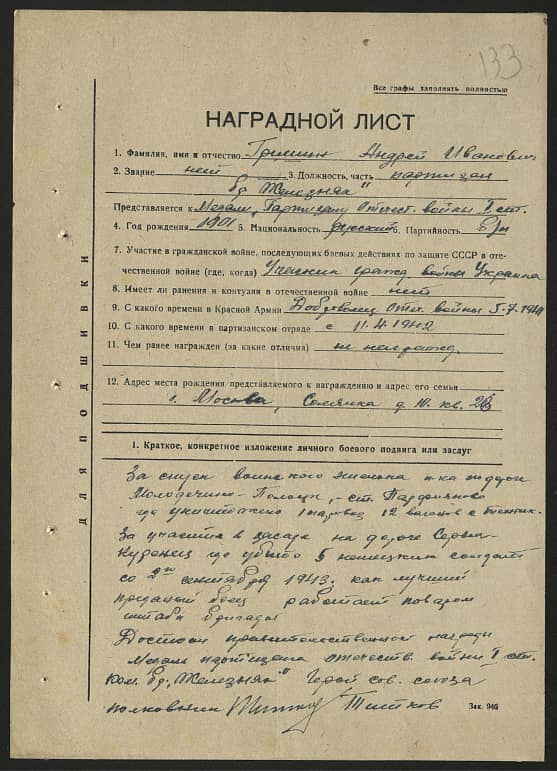 133
Все графы заполнять полностью
НАГРАДНОЙ ЛИСТ
1. Фамилия, имя и отчество Гришин Андрей Иванович
2. Звание нет 3. Должность, часть партизан
бр. Железняк"
Представляется к Медали, Партизану Отечест. войны I ст.
4. Год рождения 1901 5. Национальность русский 6. Партийность б/п
7. Участие в гражданской войне, последующих боевых действиях по защите СССР в оте-
чественной войне (где, когда) Участник гражд. войны Украина
8. Имеет ли ранения и контузии в отечественной войне нет
9. С какого времени в Красной Армии Доброволец Отеч. войны 5.7.1941
10. С какого времени в партизанском отряде с 11.4.1942
11. Чем ранее награжден (за какие отличия) не награжд.
12. Адрес места рождения представляемого к награждению и адрес его семьи
г. Москва, Солянка д. кв.
1. Краткое, конкретное изложение личного боевого подвига или заслуг
За спуск воинского эшелона п-ка на дороге
Молодечно - Полоцк, - ст. Парафианово
где уничтожено 1 паровоз 12 вагонов с
За участие в засаде на дороге
Куренец где убито 5 немецких солдат
со 2го сентября 1943г. как лучший
преданый боец работает поваром
штаба бригады
Достоин правительственной награды
Медали партизана отечеств. войны I ст.
Ком. бр. Железняк" Герой сов. союза
полковник Титков
Зак. 946
ДЛЯ ПОДШИВКИ